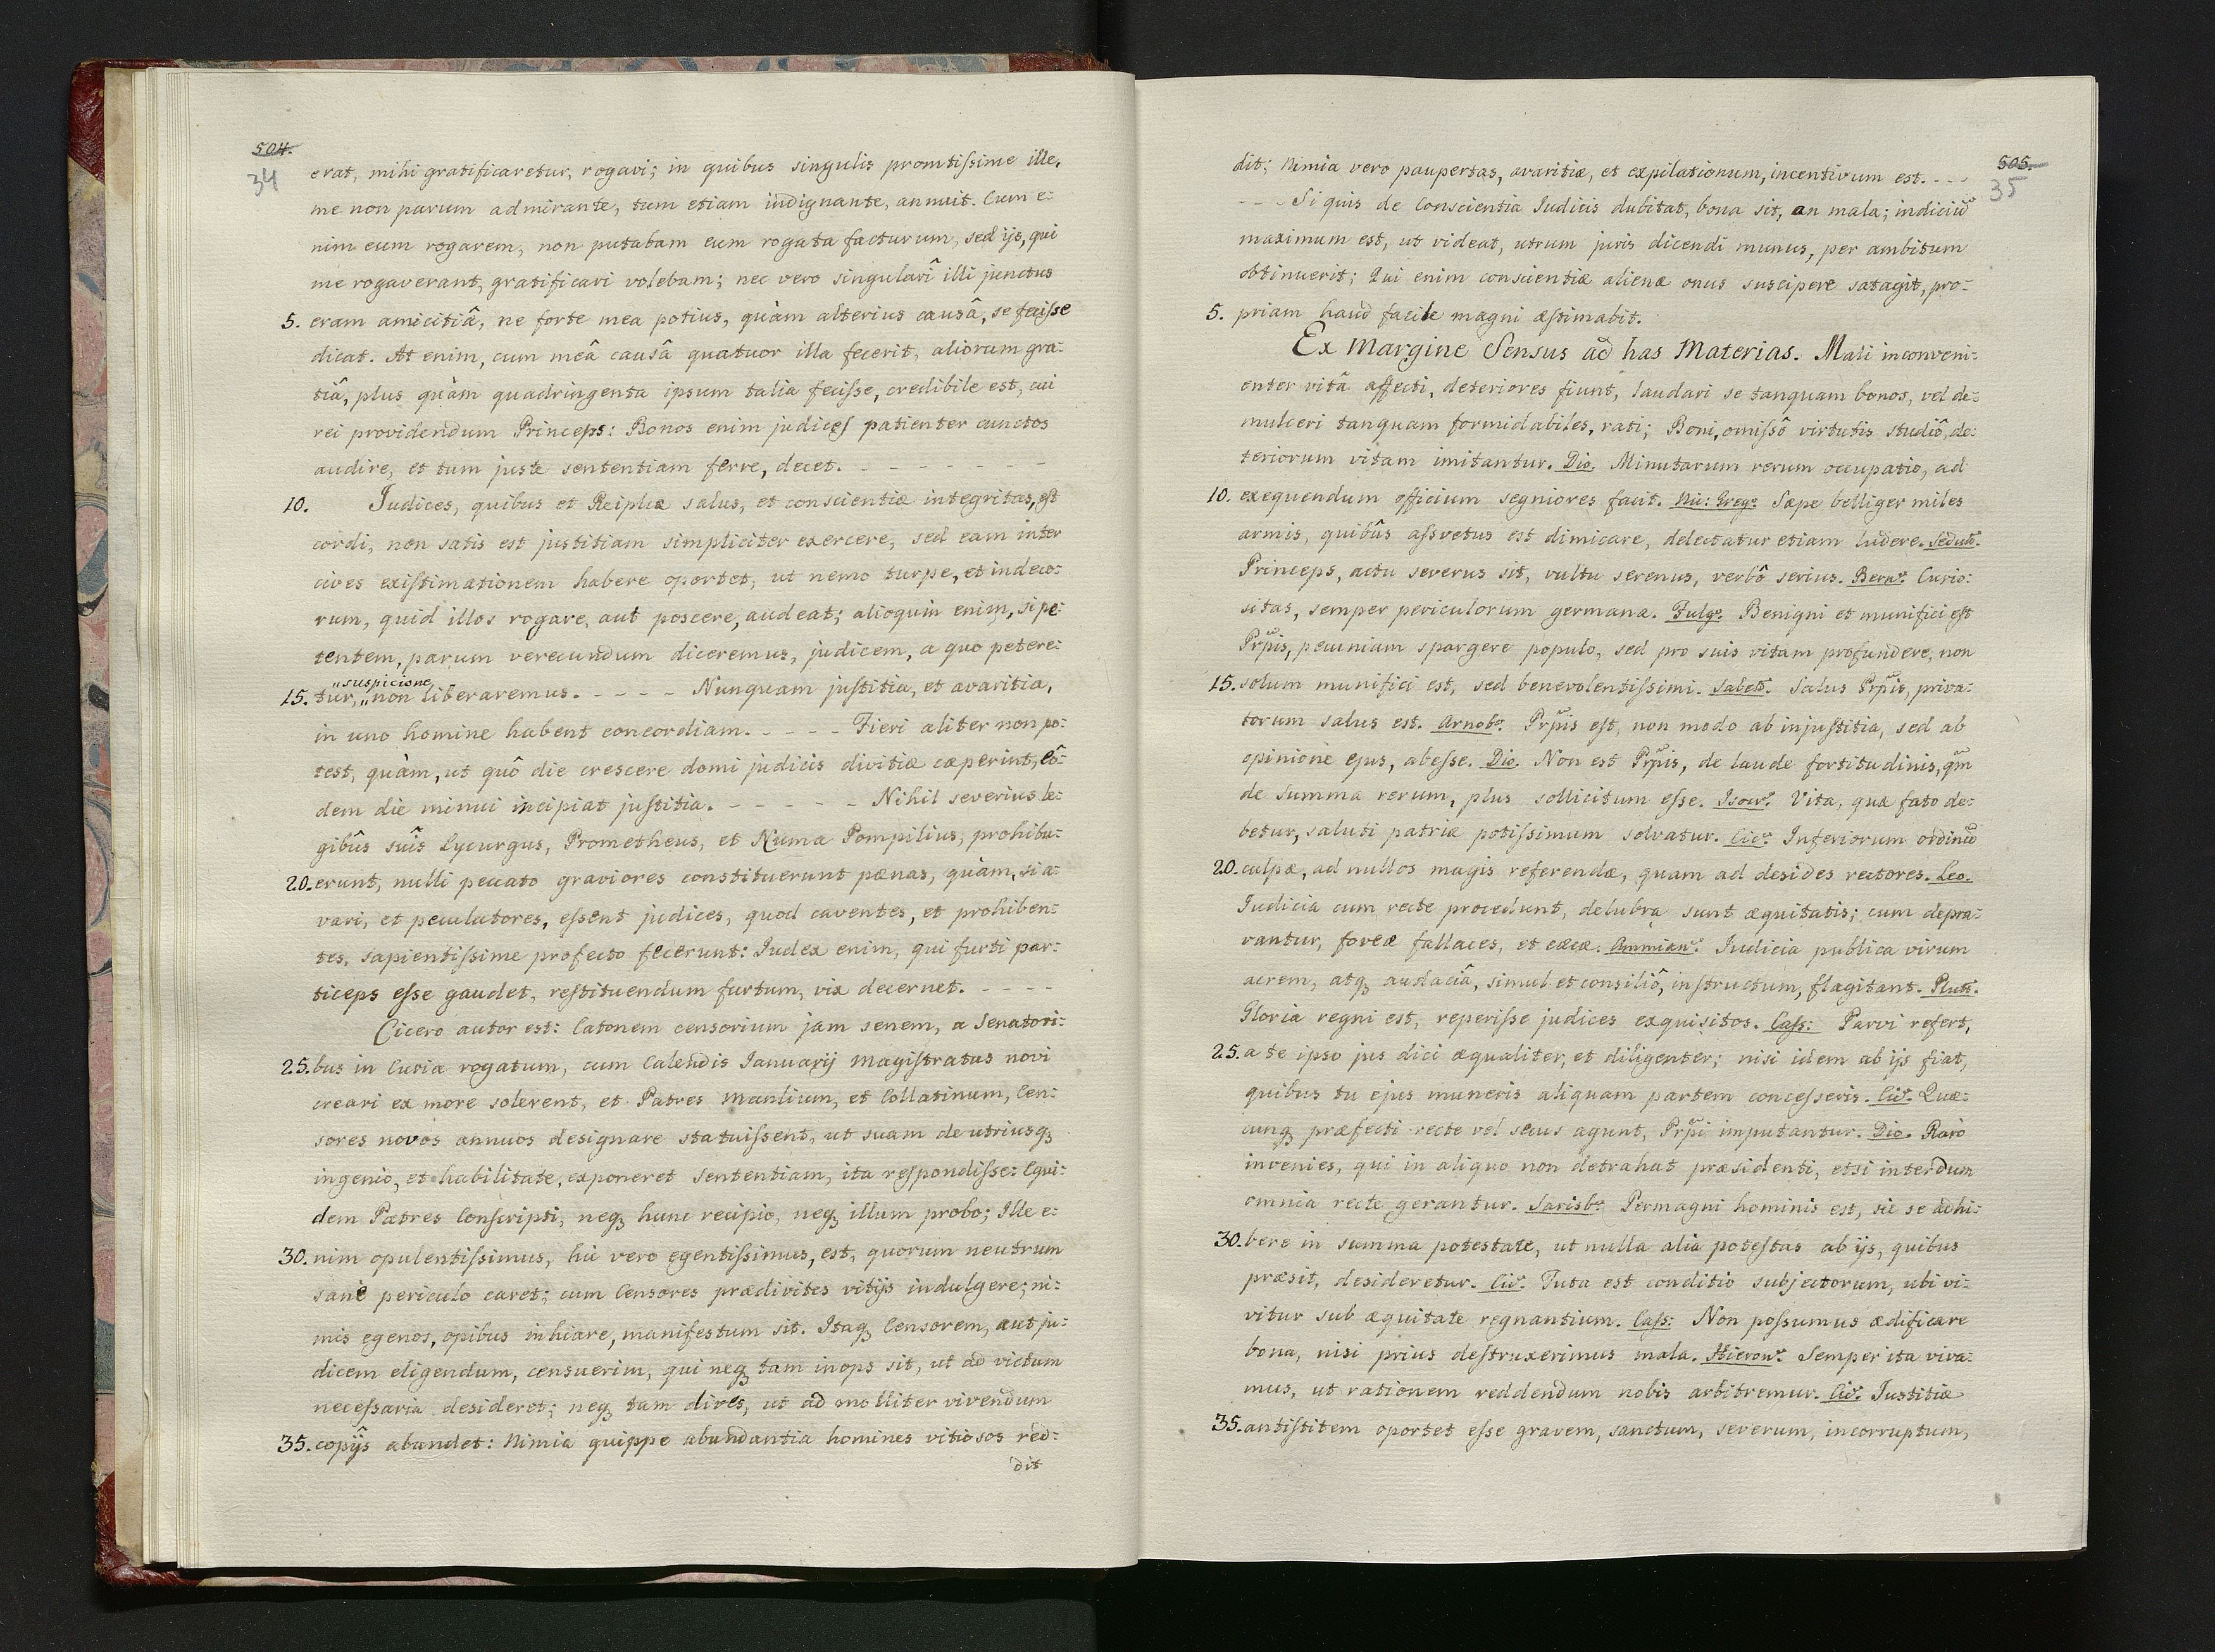 504.
34
erat, mihi gratificaretur, rogavi; in quibus singulis promtiſsime ille,
me non parum admirante, tum etiam indignante, annuit. Cum e:
nim eum rogarem, non putabam eum rogata facturum, sed ijs, qui
me rogaverant, gratificari volebam; nec vero singulari illi junctus
5. eram amicitiâ, ne forte mea potius, quàm alterius causâ, se feciſse
dicat. At enim, cum meâ causâ quatuor illa fecerit, aliorum gra:
tiâ, plus quàm quadringenta ipsum talia feciſse, credibile est, cui
rei providendum Princeps: Bonos enim judices patienter cunctos
audire, et tum juste sententiam ferre, decet. - - - - - - -
10. Judices, quibus et Reiplicæ salus, et conscientiæ integritas, eſt
cordi, non satis est justitiam simpliciter exercere, sed eam inter
cives exiſtimationem habere oportet, ut nemo turpe, et indeco:
rum, quid illos rogare, aut poscere, audeat; alioquin enim, si pe:
tentem, parum verecundum diceremus, judicem, a quo petere:
„suspicione
15. tur, „non liberaremus. - - - - - Nunquam juſtitia, et avaritia,
in uno homine habent concordiam. - - - - - Fieri aliter non po:
test, quàm, ut quô die crescere domi judicis divitiæ cæperint, eô:
dem die minui incipiat juſtitia. - - - - - - Nihil severius le:
gibûs suîs Lycurgus, Prometheus, et Numa Pompilius, prohibu:
20. erunt, nulli peccato graviores constituerunt pænas, quàm, si a:
vari, et peculatores, eſsent judices, quod caventes, et prohiben:
tes, sapientiſsime profecto fecerunt: Iudex enim, qui furti par:
ticeps eſse gaudet, reſtituendum furtum, vix decernet. - - - -
Cicero autor est: Catonem censorium jam senem, a Senatori:
25. bus in Curia rogatum, cum Calendis Ianuarij magiſtratus novi
creari ex more solerent, et Patres Manlium, et Collatinum, Cen:
sores novos annuos designare statuiſsent, ut suam de utriusq
ingenio, et habilitate, exponeret sententiam, ita reſpondiſse: Equi:
dem Patres Conſcripti, neq hunc recipio, neq illum probo; Ille e:
30. nim opulentiſsimus, hic vero egentiſsimus, est, quorum neutrum
sanè periculo caret; cum Censores prædivites vitijs indulgere; ni:
mis egenos, opibus inhiare, manifestum sit. Itaq Censorem, aut ju:
dicem eligendum, censuerim, qui neq tam inops sit, ut ad victum
neceſsaria desideret; neq tam dives, ut ad molliter vivendum
35. copijs abundet: Nimia quippe abundantia homines vitiosos red:
dit
505.
35
dit; Nimia vero paupertas, avaritiæ, et expilationum, incentivum est. - - -
- - Si quis de Conscientia Iudicis dubitat, bona sit, an mala; indiciũ
maximum est, ut videat, utrum juris dicendi munus, per ambitum
obtinuerit; Qui enim conscientiæ alienæ onus suscipere satagit, pro:
5. priam haud facile magni æſtimabit.
Ex Margine Sensus ad has Materias. Mali inconveni:
enter vitâ affecti, deteriores fiunt, laudari se tanquam bonos, vel de:
mulceri tanquam formidabiles, rati; Boni, omiſsô virtutis studiô, de:
teriorum vitam imitantur. Dio. Minutarum rerum occupatio, ad
10. exequendum officium segniores facit. Nic: Greg: Sæpe belliger miles
armis, quibûs aſsvetus est dimicare, delectatur etiam ludere. Sedul:
Princeps, actu severus sit, vultu serenus, verbô serius. Bern: Curio:
sitas, semper periculorum germana. Fulg: Benigni et munifici eſt
Prpis, pecuniam spargere populo, sed pro suis vitam profundere, non
15. solum munifici est, sed benevolentiſsimi. Sabell: Salus Prpis, priva:
torum salus est. Arnob: Prpis eſt, non modo ab injuſtitia, sed ab
opinione ejus, abeſse. Dio. Non est Prpis, de laude fortitudinis, qm
de summa rerum, plus sollicitum eſse. Isocr: Vita, quæ fato de:
betur, saluti patriæ potiſsimum solvatur. Cic: Inferiorum ordinũ
20. culpæ, ad nullos magis referendæ, quam ad desides rectores. Leo.
Iudicia cum recte procedunt, delubra sunt æquitatis; cum depra:
vantur, foveæ fallaces, et cæcæ. Ammian: Iudicia publica virum
acrem, atq audaciâ, simul et consiliô, inſtructum, flagitant. Plut:
Gloria regni est, reperiſse judices exquisitos. Caſs: Parvi refert,
25. a te ipso jus dici æqualiter, et diligenter; nisi idem ab ijs fiat,
quibus tu ejus muneris aliquam partem conceſseris. Cic: Quæ:
cunq præfecti recte vel secus agunt, Prpi imputantur. Dio. Raro
invenies, qui in aliquo non detrahat præsidenti, etsi interdum
omnia recte gerantur. Sarisb: Permagni hominis est, sic se adhi:
30. bere in summa potestate, ut nulla alia poteſtas ab ijs, quibus
præsit, desideretur. Cic: Tuta est conditio subjectorum, ubi vi:
vitur sub æquitate regnantium. Caſs: Non poſsumus ædificare
bona, nisi prius deſtruxerimus mala. Hieron: Semper ita viva:
mus, ut rationem reddendum nobis arbitremur. Cic: Iustitiæ
35. antiſtitem oportet eſse gravem, sanctum, severum, incorruptum,